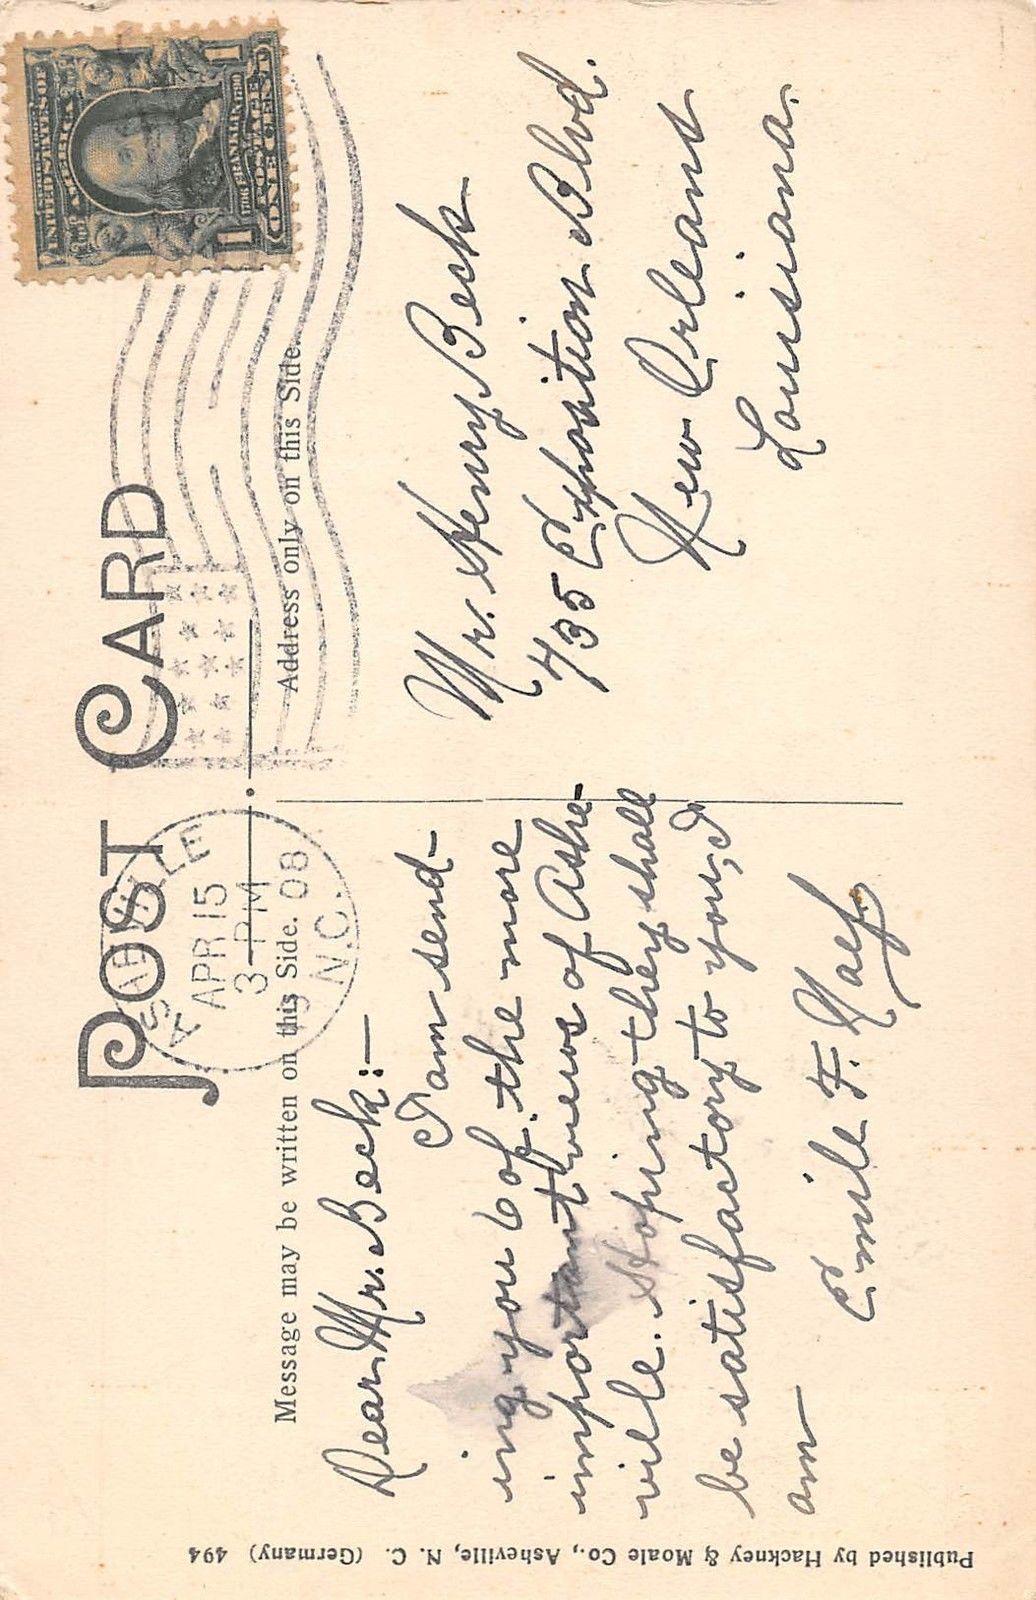 POST CARD
Message may be written on this Side.
Address only on this Side.
ASHEVILLE
APR 15
3-PM
08
N.C.
UNITED STATES OF
AMERICA
FRANKLIN
POSTAGE
1 ONE CENT 1
Dear Mr. Beck:—
I am send-
ing you 6 of the more
important views of Ashe-
ville. Hoping they shall
be satisfactory to you, I
am
Emile F. Naef
Mr. Henry Beck
735 Exposition Blvd.
New Orleans
Louisiana.
Published by Hackney & Moale Co., Asheville, N. C. (Germany) 494